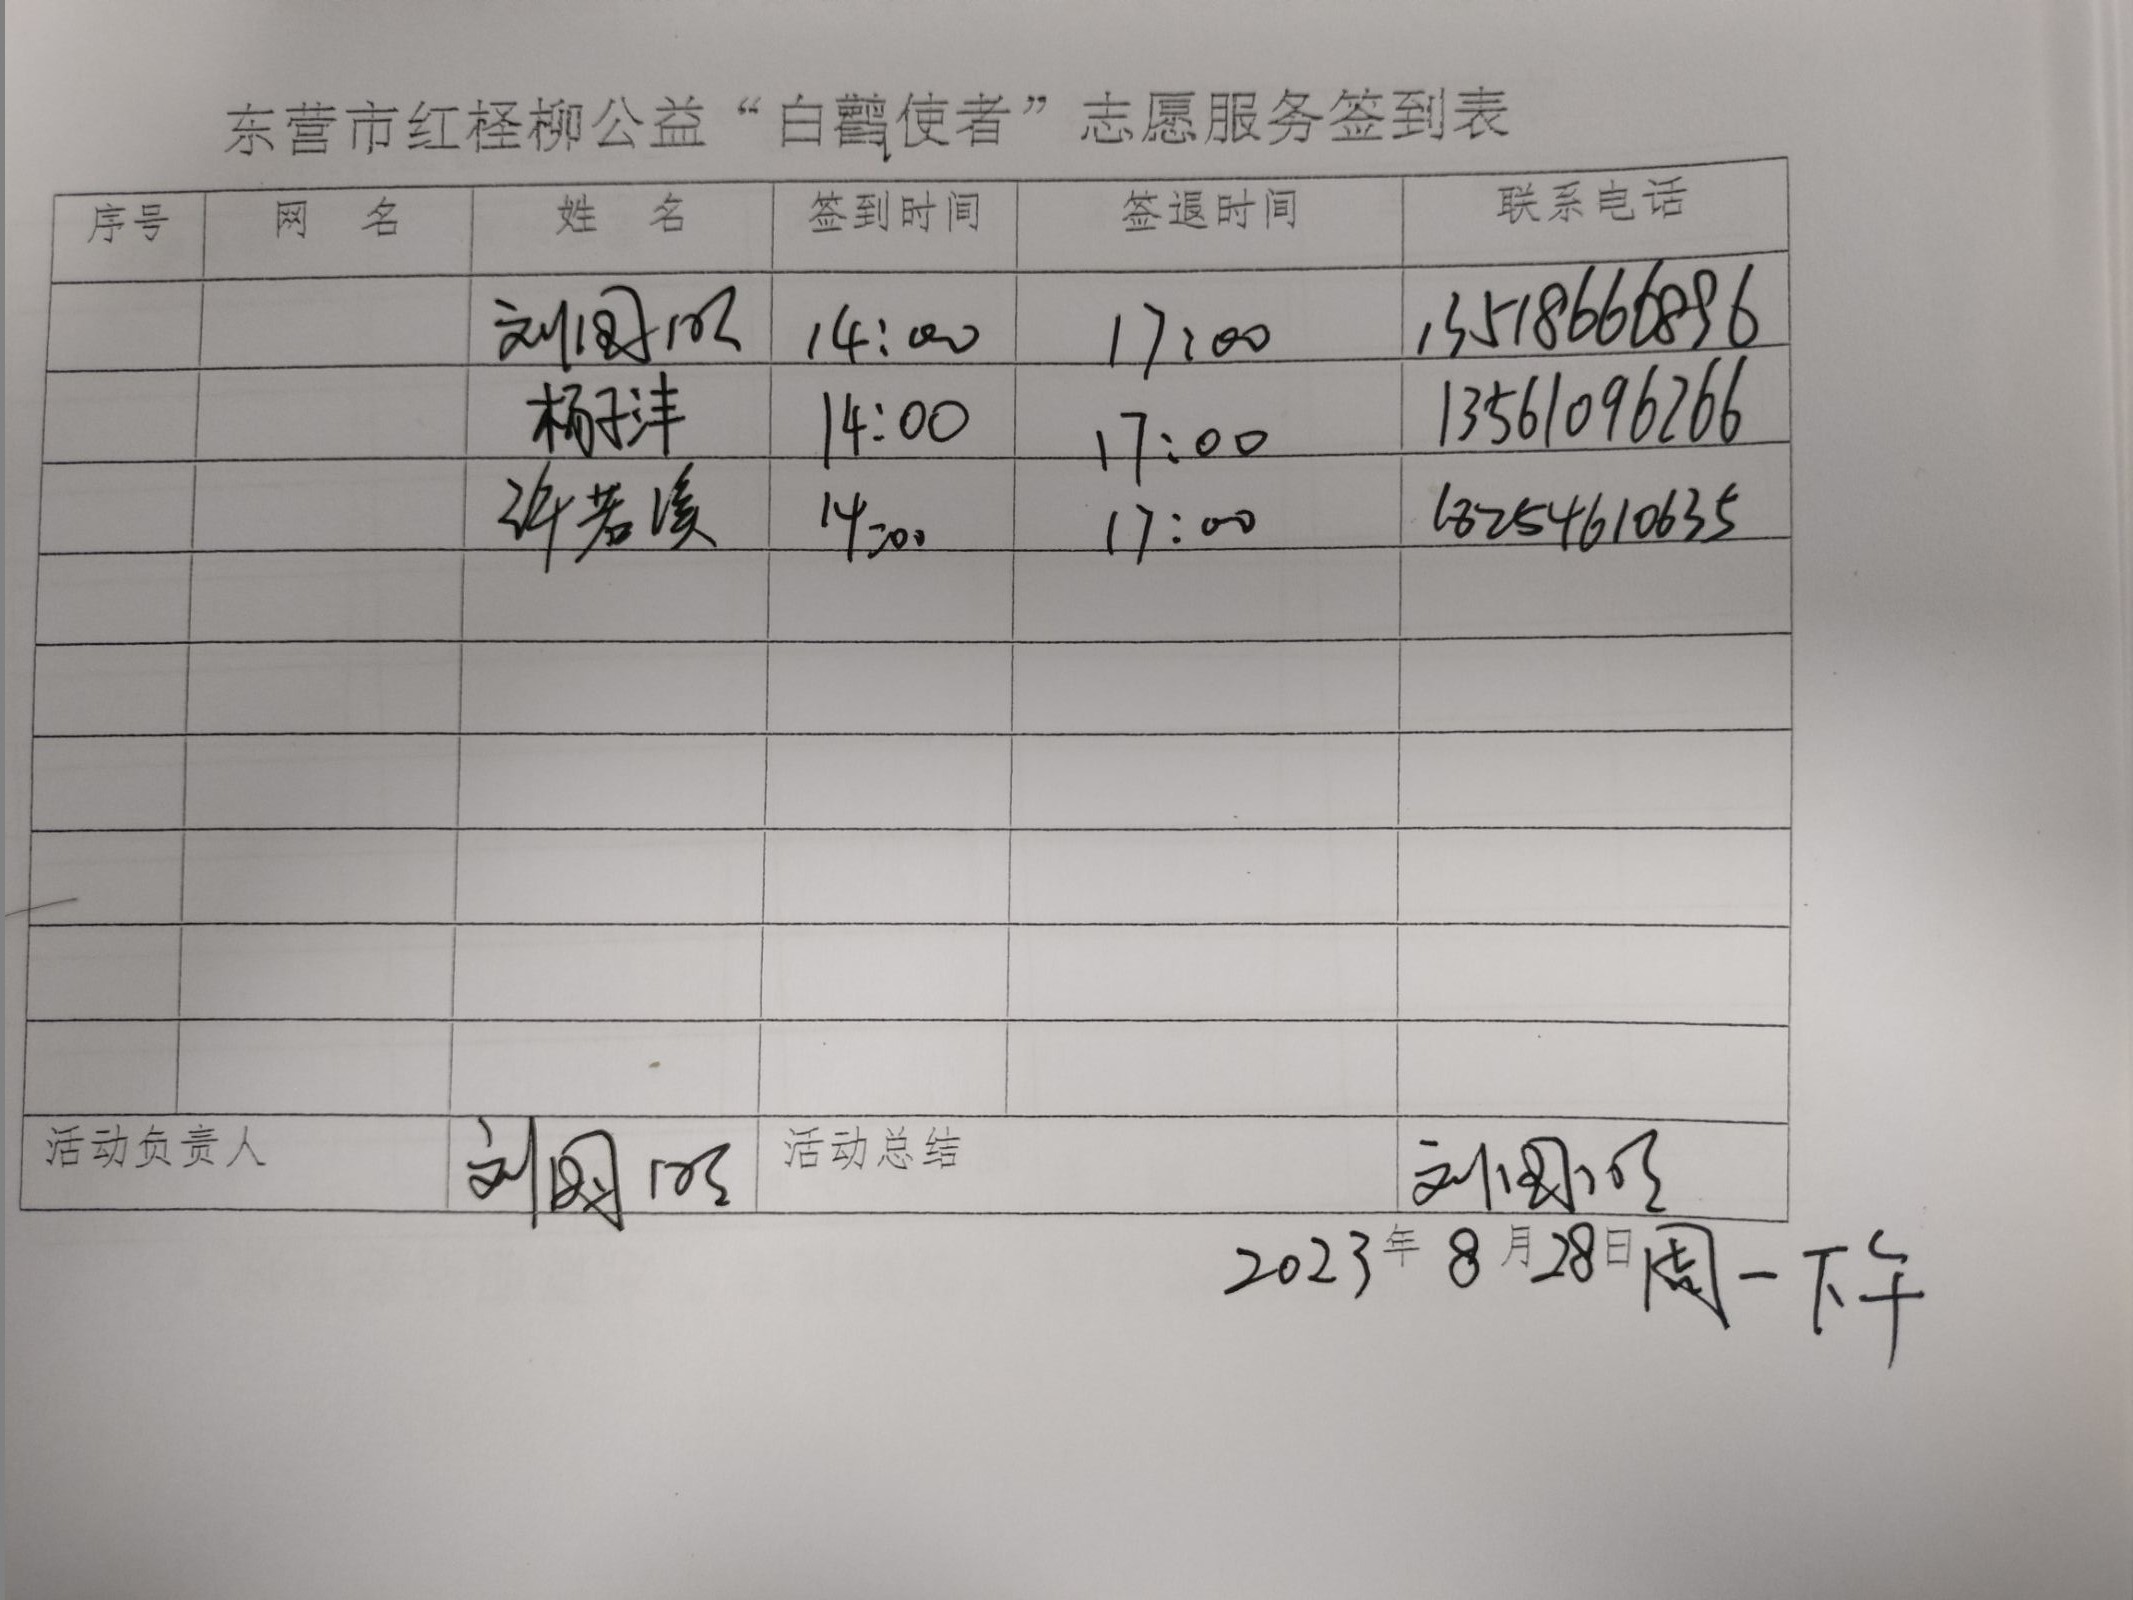 东营市红柽柳公益“白鹳使者”志愿服务签到表
序号 网 名 姓 名 签到时间 签退时间 联系电话
刘国明 14:00 17:00 13518666896
杨子沣 14:00 17:00 13561096266
许若溪 14:00 17:00 18254610635
活动负责人 刘国明 活动总结 刘国明
2023年8月28日周一下午